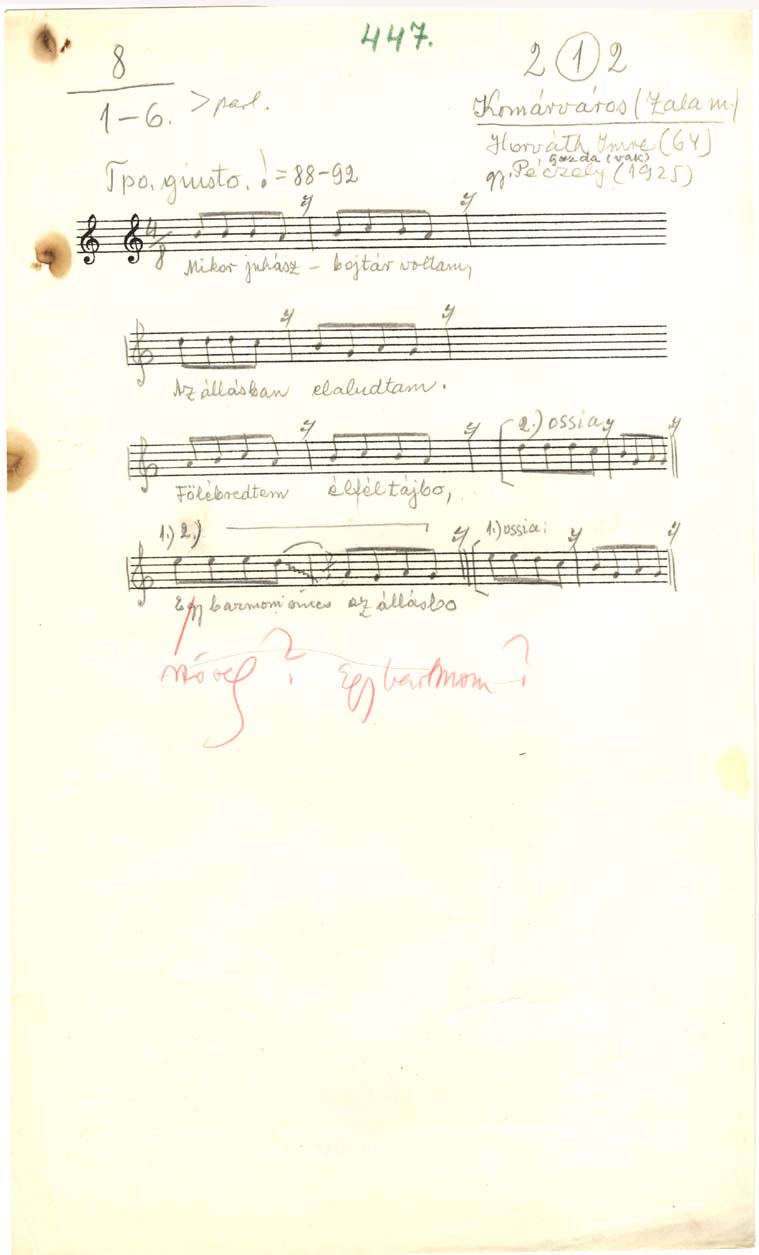 447.
8
2 1 2
1-6. > parl.
Komárváros (Zala m.)
Horváth Imre (64)
gazda (vak)
gy. Péczely (1925)
Tpo. giusto. ♩ = 88-92
4/8
Mikor juhász - bojtár voltam,
Az állásban elaludtam.
2.) ossia
Fölébredtem élféltájbo,
1.) 2.)
1.) ossia:
Egy barmom sincs az állásbo
? Egy barmom?